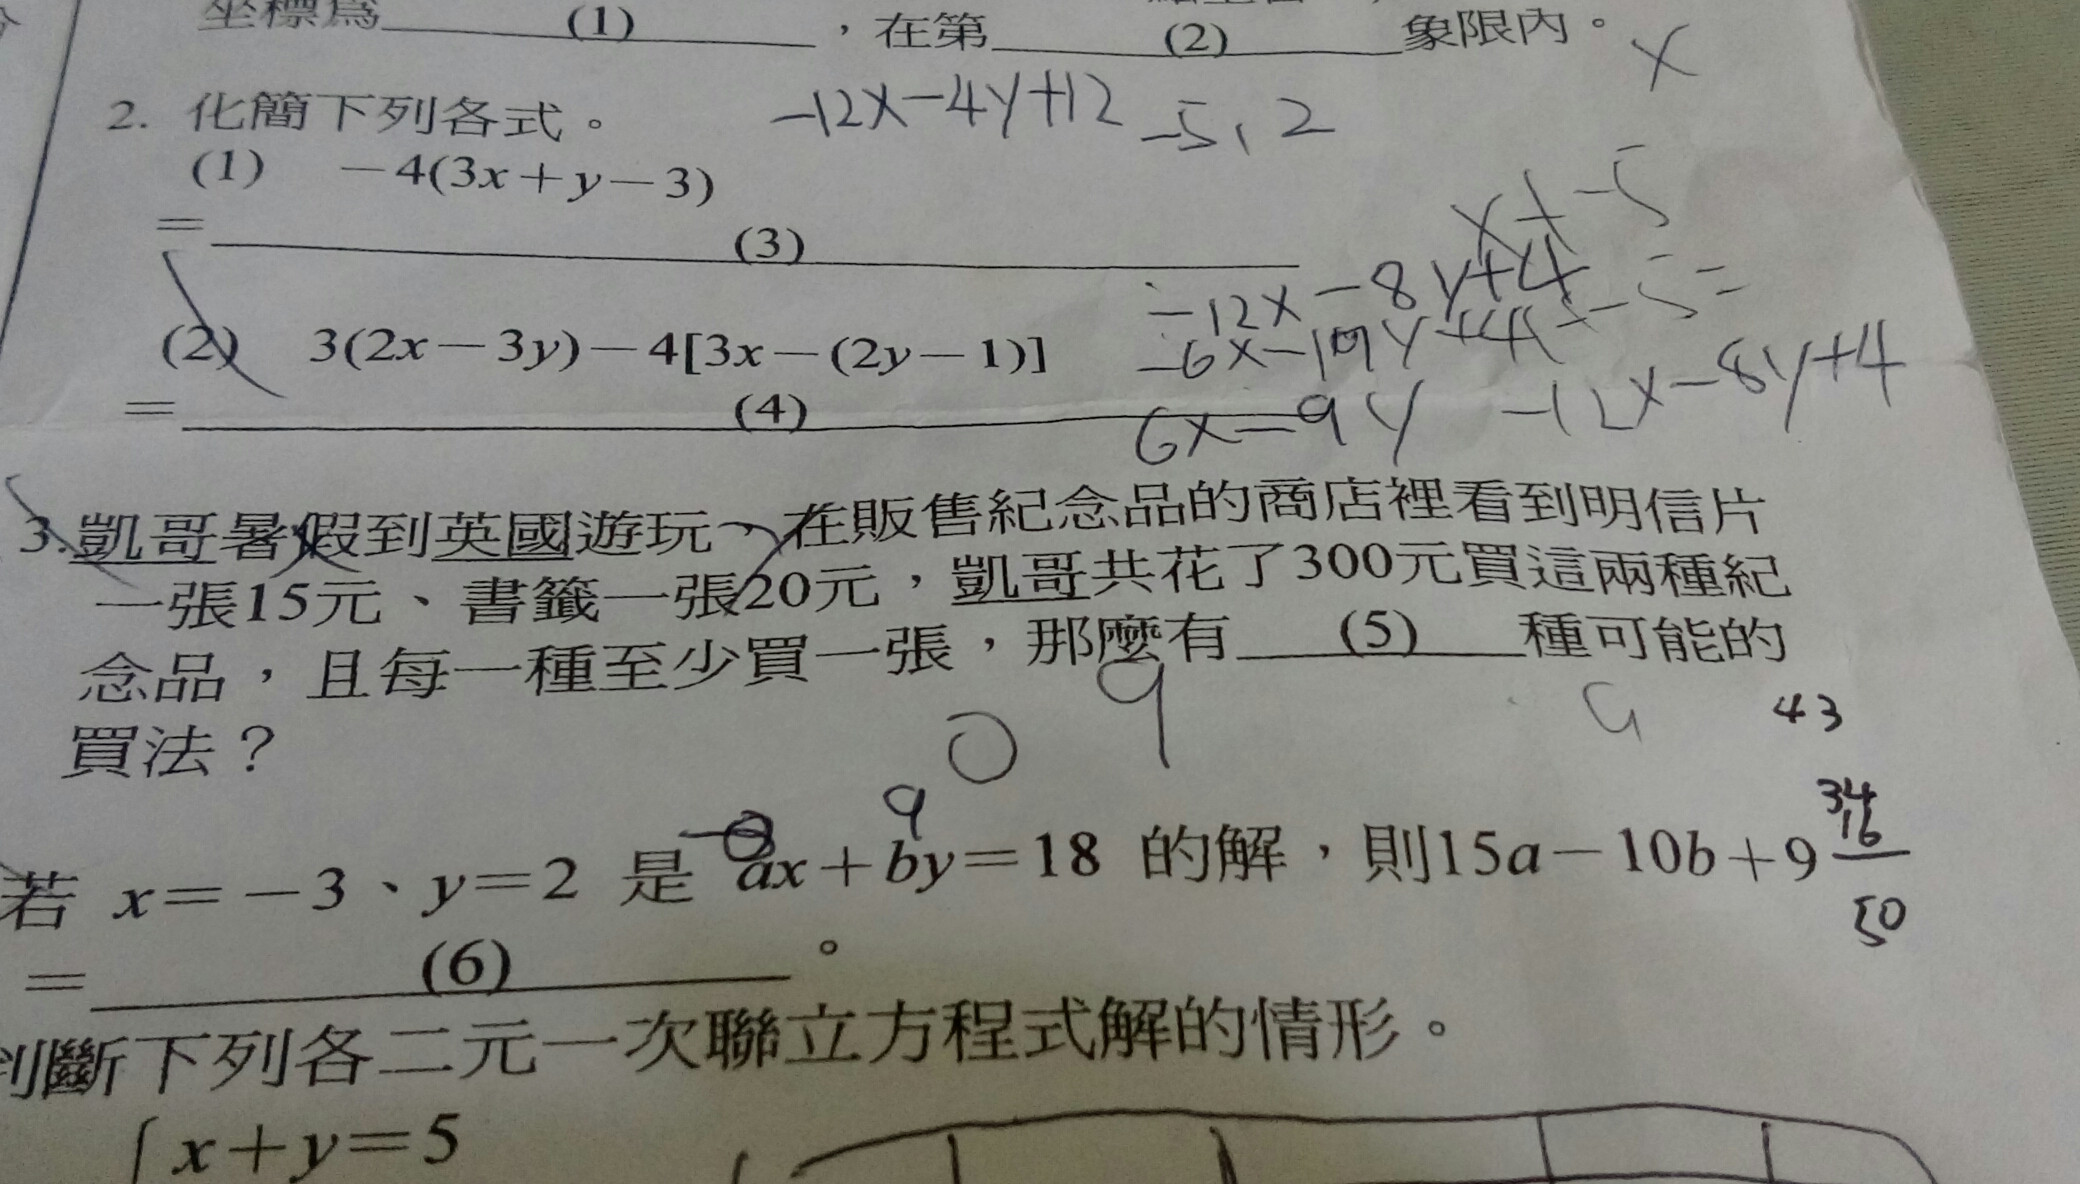 坐標為 (1) ，在第 (2) 象限內。
x
2. 化簡下列各式。
-12x-4y+12
-5, 2
(1) －4(3x＋y－3)
= (3)
-12x-8y+4
(2) 3(2x－3y)－4[3x－(2y－1)]
= (4)
6x-9y -12x-8y+4
3.凱哥暑假到英國遊玩，在販售紀念品的商店裡看到明信片
一張15元、書籤一張20元，凱哥共花了300元買這兩種紀
念品，且每一種至少買一張，那麼有 (5) 種可能的
買法？
9
43
9
34
16
50
若 x＝－3、y＝2 是 ax＋by＝18 的解，則15a－10b＋9
＝ (6) 。
判斷下列各二元一次聯立方程式解的情形。
x＋y＝5